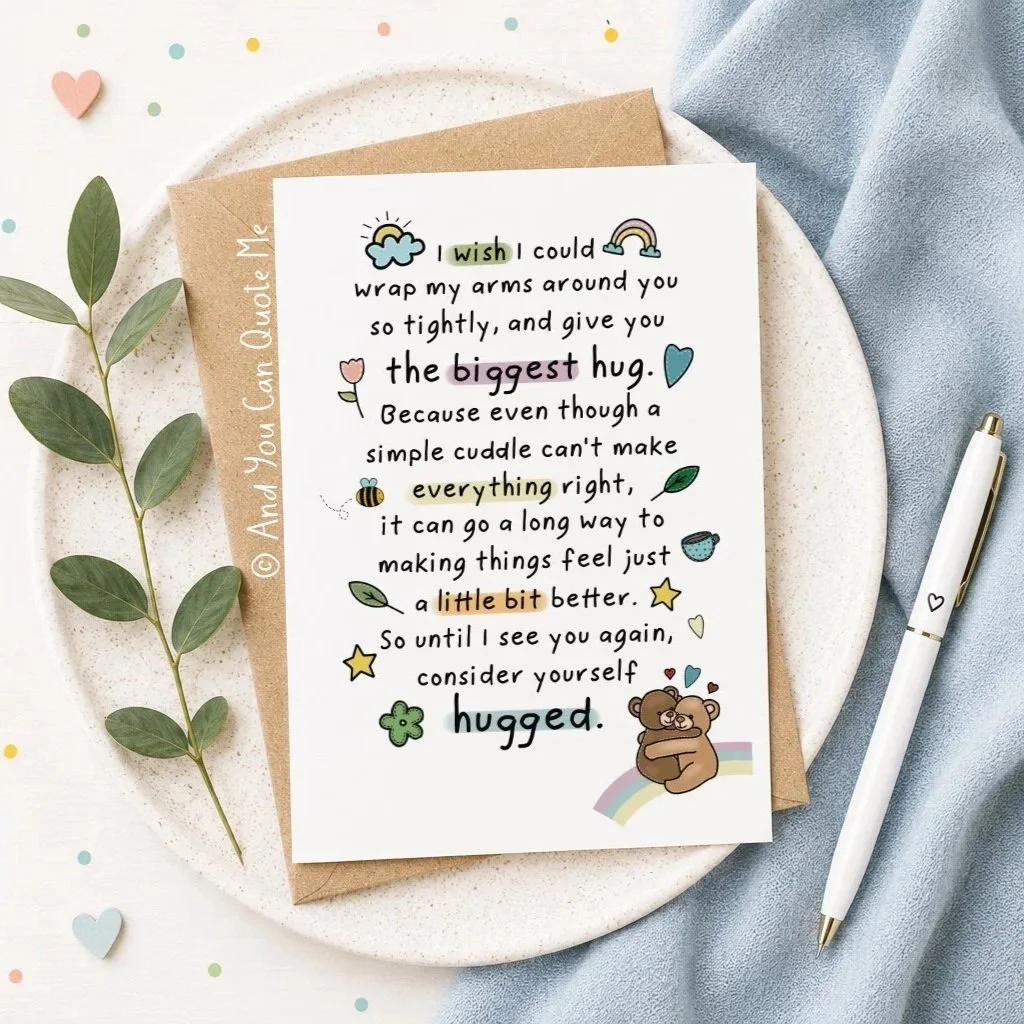 I wish I could
wrap my arms around you
so tightly, and give you
the biggest hug.
Because even though a
simple cuddle can't make
everything right,
it can go a long way to
making things feel just
a little bit better.
So until I see you again,
consider yourself
hugged.
© And You Can Quote Me